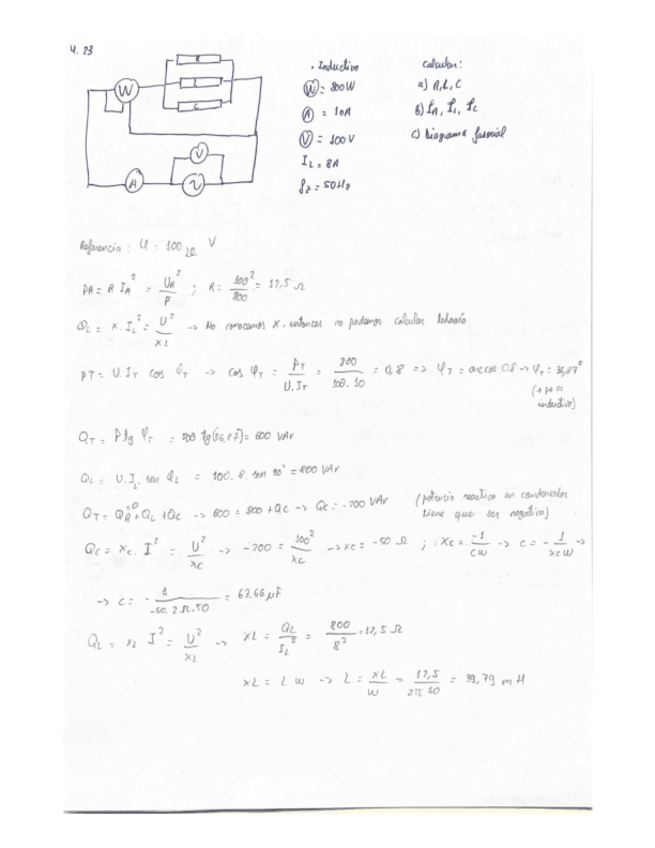 4.23
R
L
C
W
V
A
• Inductivo
W = 800W
A = 10A
V = 100V
I_L = 8A
f_z = 50Hz
Calcular:
a) R, L, C
b) I_R, I_L, I_C
c) Diagrama fasorial
Referencia: U = 100 V
P_R = R I_R² = U_R² / R ; R = 100² / 800 = 12,5 Ω
Q_L = X. I_L² = U² / X_L → No conocemos X, entonces no podemos calcular todavía
P_T = U. I_T cos φ_T → cos φ_T = P_T / U.I_T = 800 / 100.10 = 0,8 => φ_T = arc cos 0,8 → φ_T = 36,87°
(+ pq es inductivo)
Q_T = P tg φ_T = 800 tg(36,87) = 600 VAr
Q_L = U.I_L sen φ_L = 100. 8. sen 90° = 800 VAr
Q_T = Q_R + Q_L + Q_C → 600 = 800 + Q_C → Q_C = -200 VAr (potencia reactiva en condensador tiene que ser negativa)
=0
Q_C = X_C. I² = U² / X_C → -200 = 100² / X_C → X_C = -50 Ω ; X_C = -1 / CW → C = - 1 / X_C W →
→ C = - 1 / -50. 2π.50 = 63.66 μF
Q_L = X_L I² = U² / X_L → X_L = Q_L / I_L² = 800 / 8² = 12,5 Ω
X_L = L W → L = X_L / W = 12,5 / 2π 50 = 39,79 mH